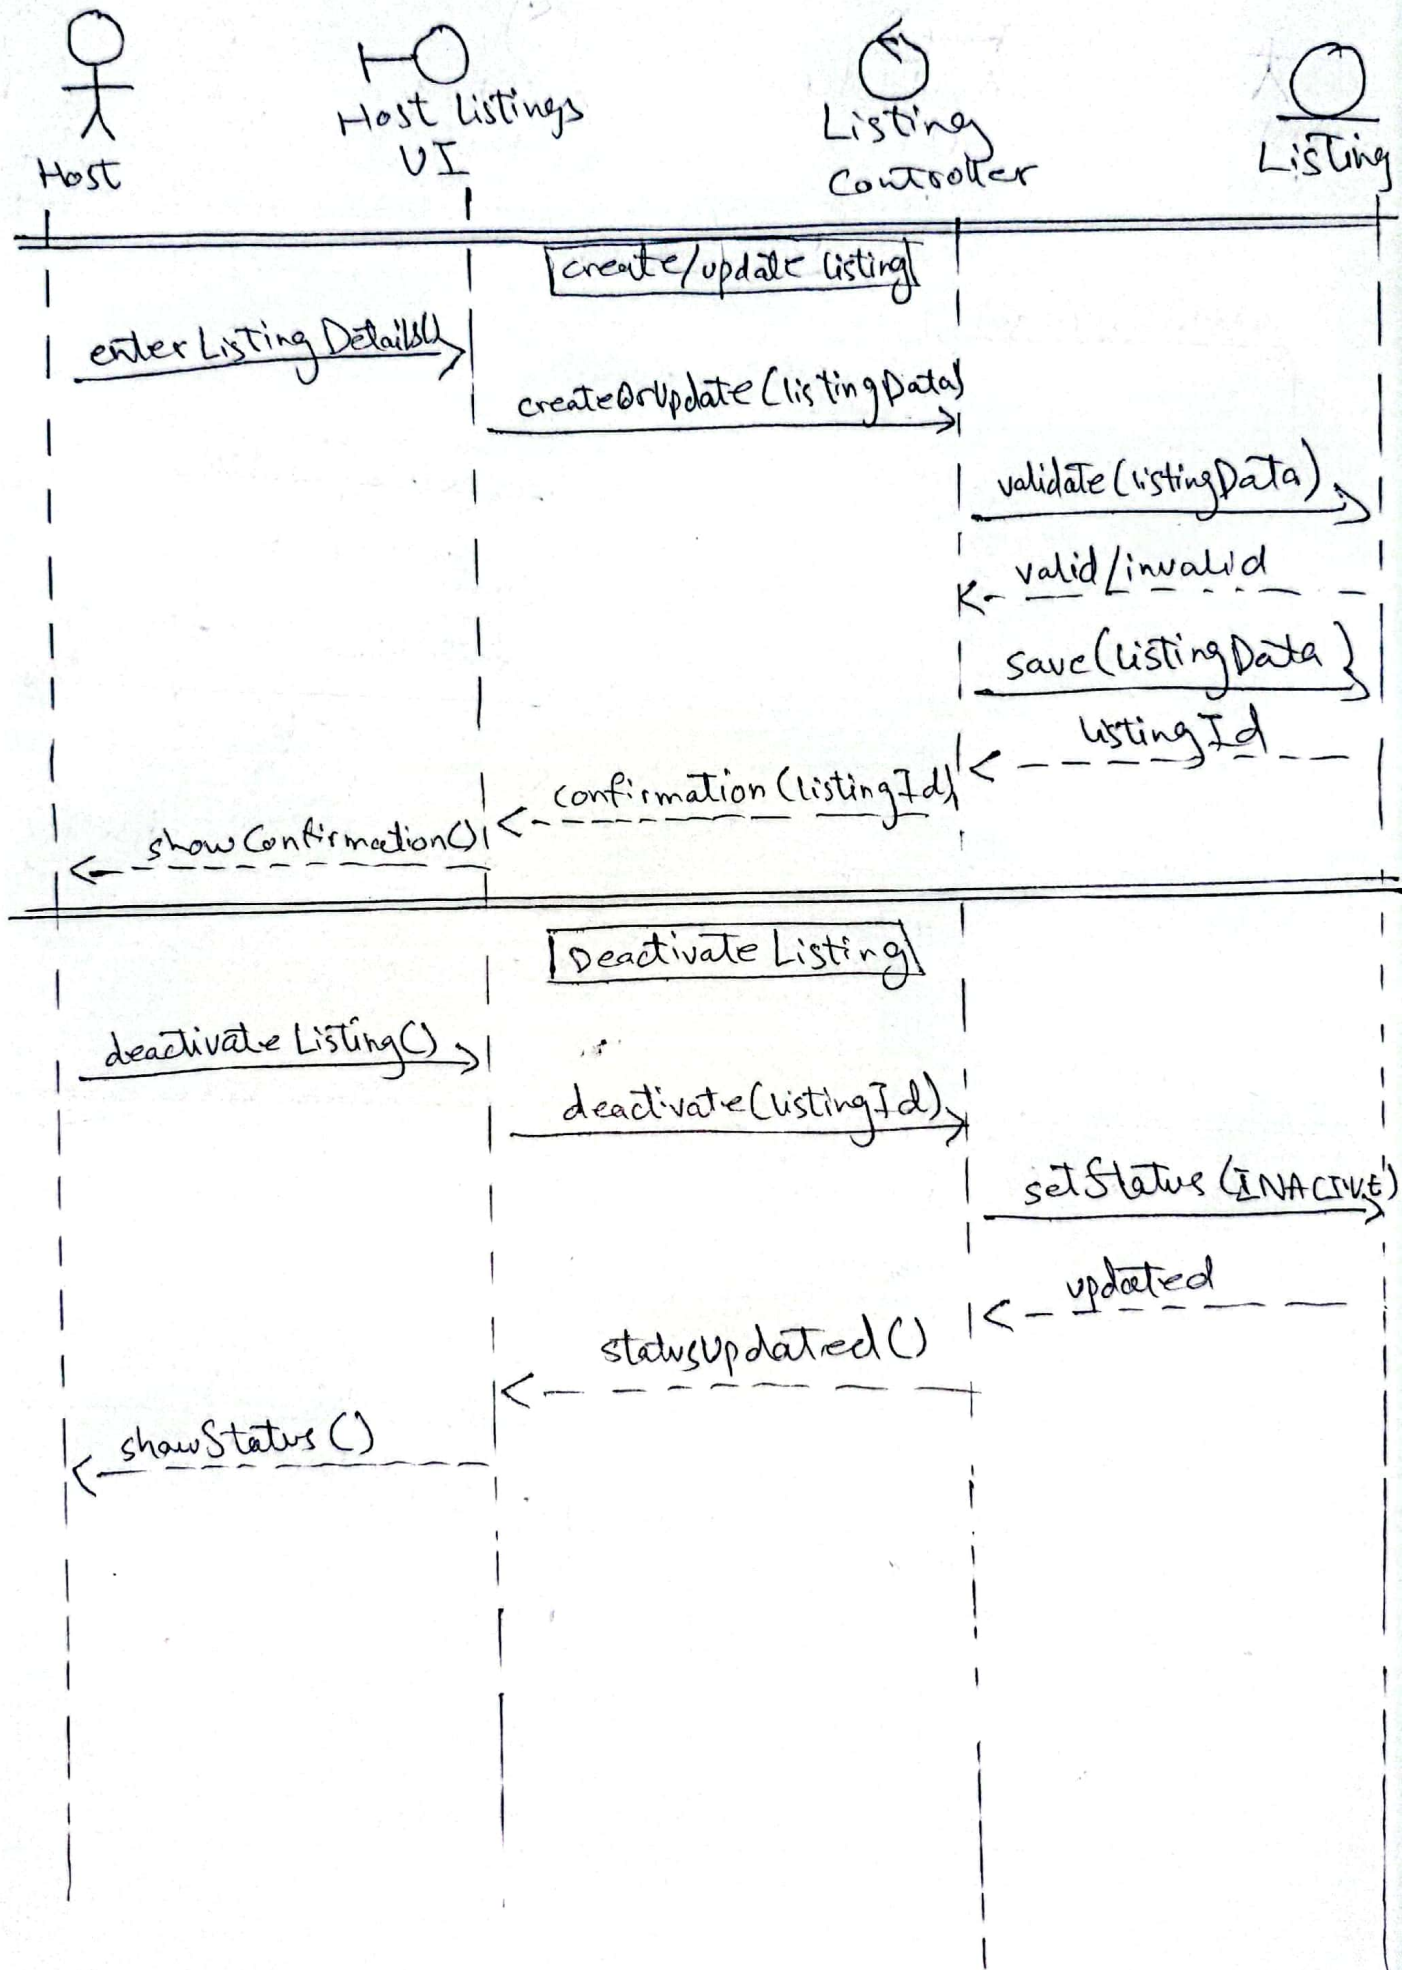 Host
Host Listings
UI
Listing
Controller
Listing
create/update listing
enterListingDetails()
createOrUpdate(listingData)
validate(listingData)
valid/invalid
save(listingData)
listingId
confirmation(listingId)
showConfirmation()
Deactivate Listing
deactivateListing()
deactivate(listingId)
setStatus(INACIVE)
updated
statusUpdated()
showStatus()